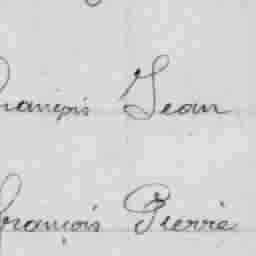 François Jean
François Pierre